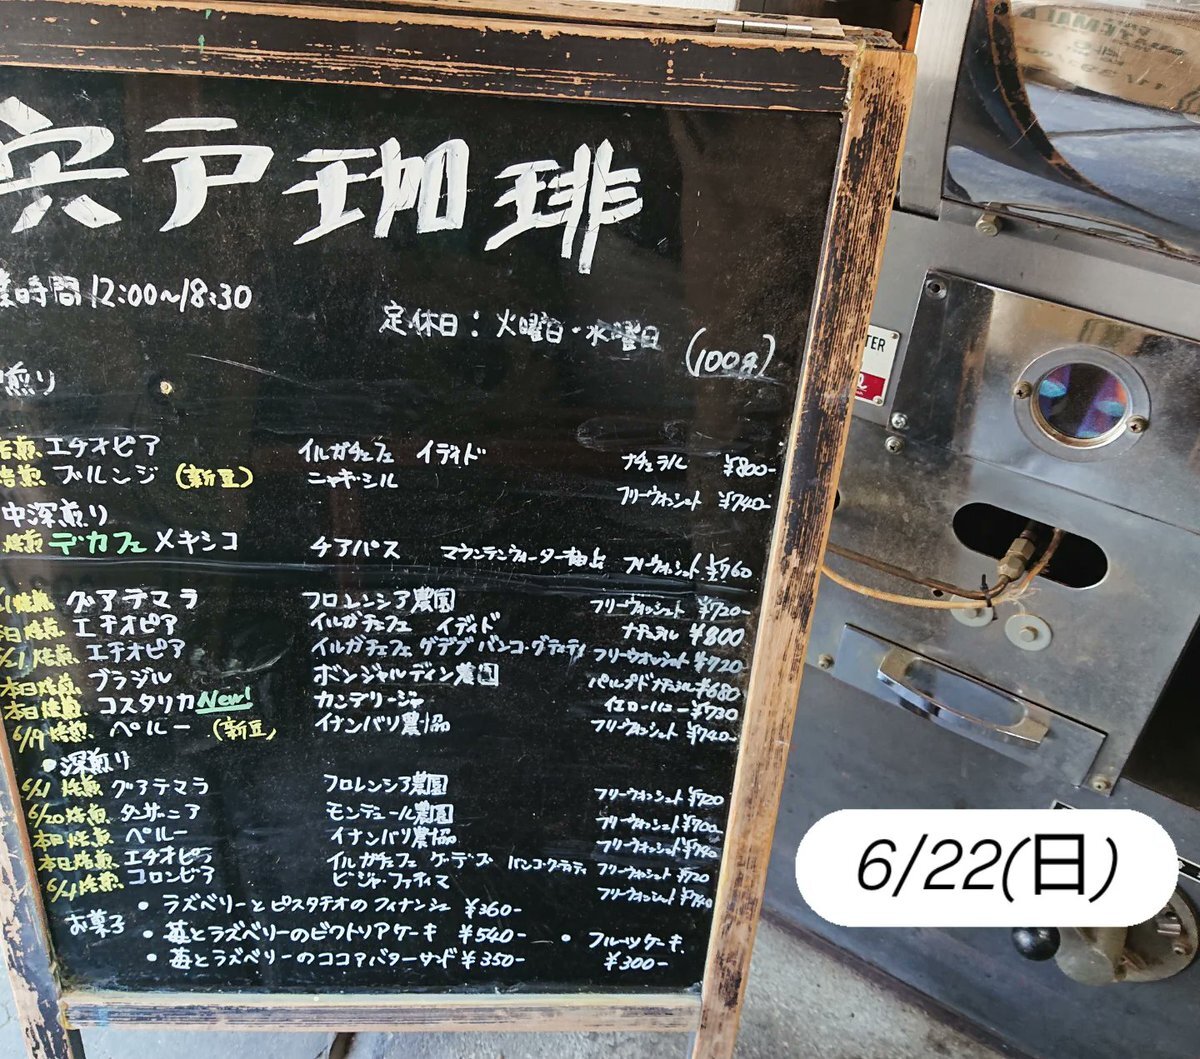 宍戸珈琲
業時間 12:00〜18:30
定休日：火曜日・水曜日 (100g)
煎り
焙煎 エチオピア イルガチェフェ イディド ナチュラル ¥800-
焙煎 ブルンジ (新豆) ニャギシル フリーウォッシュト ¥740-
中深煎り
焙煎 デカフェ メキシコ チアパス マウンテンウォーター抽出 フリーウォッシュト ¥760
焙煎 グアテマラ フロレンシア農園 フリーウォッシュト ¥720-
本日焙煎 エチオピア イルガチェフェ イディド ナチュラル ¥800
6/21焙煎 エチオピア イルガチェフェ ゲデブ バンコ・ゴティティ フリーウォッシュト ¥720
本日焙煎 ブラジル ボンジャルディン農園 パルプドナチュラル ¥680
本日焙煎 コスタリカ New! カンデリージャ イエローハニー ¥730
6/19焙煎 ペルー (新豆) イナンバリ農協 フリーウォッシュト ¥740-
・深煎り
6/21焙煎 グアテマラ フロレンシア農園 フリーウォッシュト ¥720
6/20焙煎 タンザニア モンデュール農園 フリーウォッシュト ¥700-
本日焙煎 ペルー イナンバリ農協 フリーウォッシュト ¥740
本日焙煎 エチオピア イルガチェフェ ゲデブ バンコ・ゴティティ フリーウォッシュト ¥720
6/21焙煎 コロンビア ビジャ・ファティマ フリーウォッシュト ¥740
お菓子
・ラズベリーとピスタチオのフィナンシェ ¥360-
・苺とラズベリーのビクトリアケーキ ¥540-
・フルーツケーキ ¥300-
・苺とラズベリーのココアバターサンド ¥350-
6/22(日)